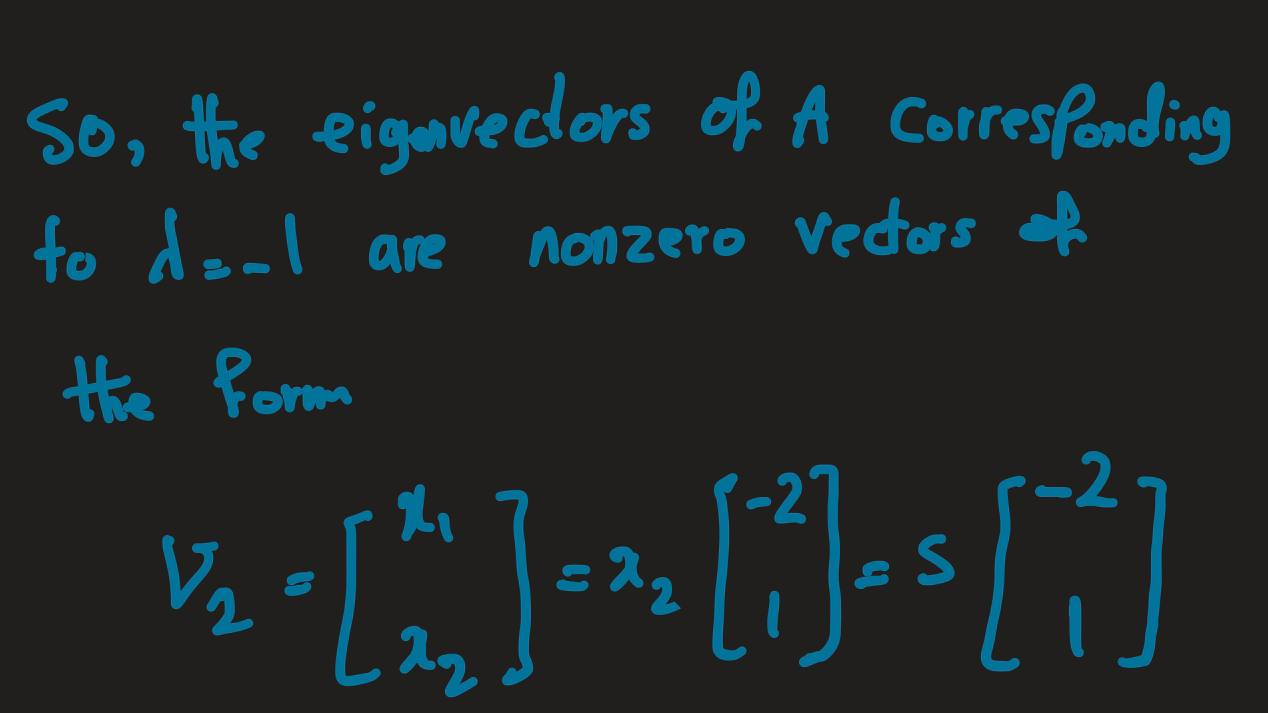 So, the eigenvectors of A corresponding
to λ = -1 are nonzero vectors of
the form
V₂ = [x₁ x₂] = x₂ [-2 1] = s [-2 1]